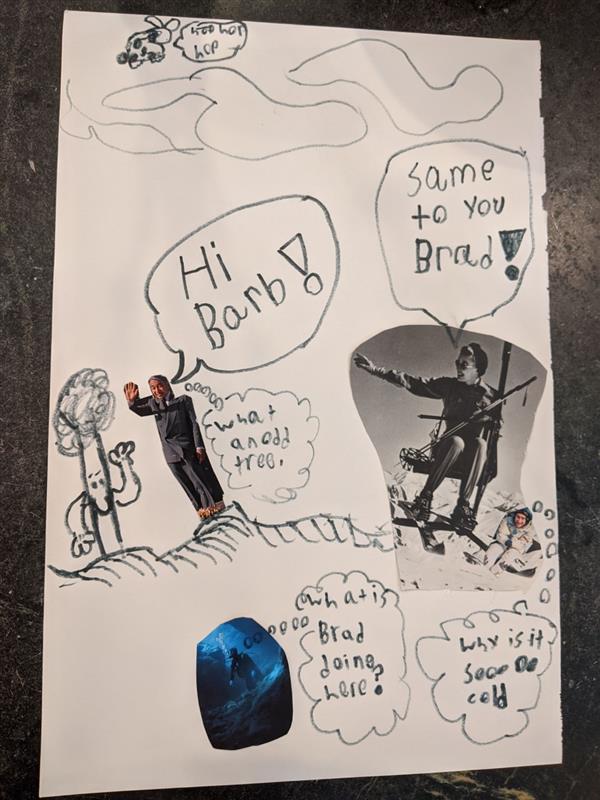 hoo hoo
hoo
Same
to you
Brad!
Hi
Barb!
what
an odd
tree.
what is
Brad
doing
here?
why is it
sooo
cold